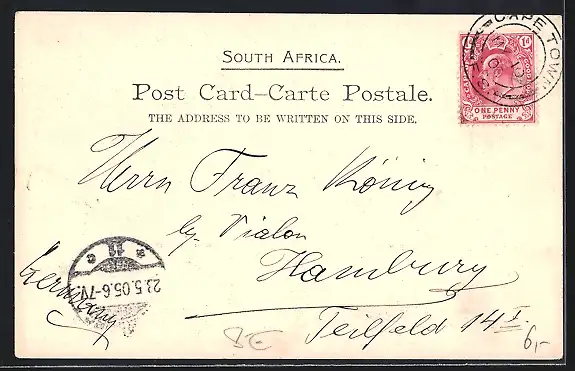 SOUTH AFRICA.
Post Card–Carte Postale.
THE ADDRESS TO BE WRITTEN ON THIS SIDE.
CAPE TOWN
1d 1d
ONE PENNY
POSTAGE
Herrn Franz König
by Vialon
Hamburg
Teilfeld 14 I.
Germany
* 11 *
23.5.05.6-7N.
8€
6,-